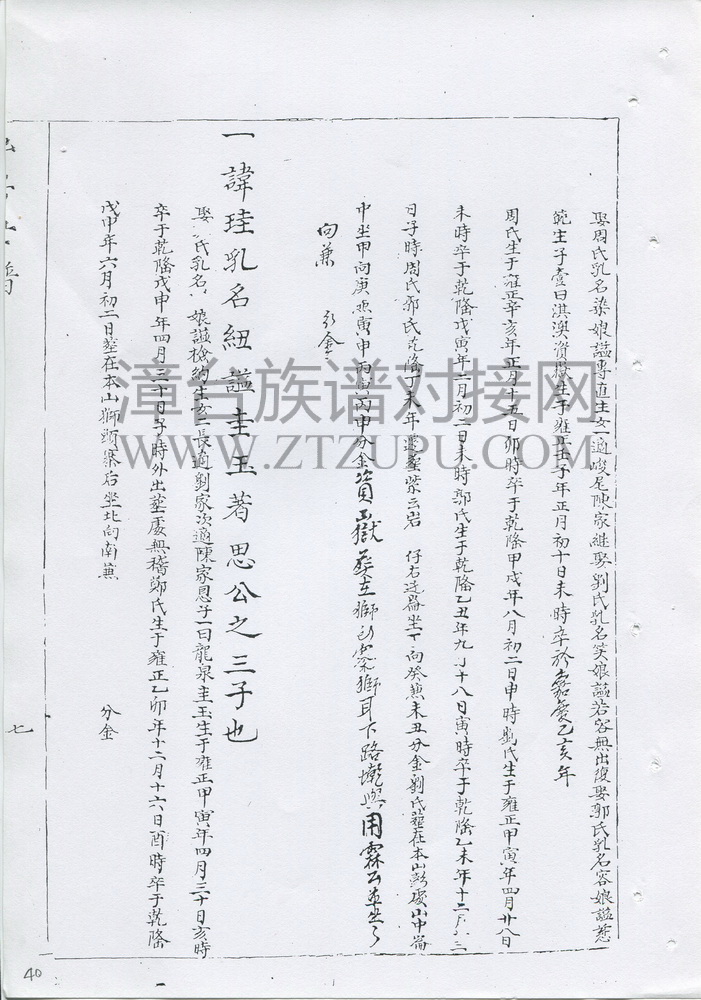 娶周氏乳名染娘諡專直生女一適峻尾陳家繼娶劉氏乳名笑娘諡若容無出復娶郭氏乳名容娘諡慈
範生子壹曰淇澳資嶽生于雍正壬子年正月初十日未時卒於嘉慶乙亥年
周氏生于雍正辛亥年正月十五日卯時卒于乾隆甲戌年八月初二日申時劉氏生于雍正甲寅年四月廿八日
未時卒于乾隆戊寅年二月初二日未時郭氏生于乾隆乙丑年九月十八日寅時卒于乾隆乙未年十二月
日子時周氏郭氏乾隆丁未年 葬紫云岩 仔右边崙坐丁向癸兼未丑分金劉氏葬在本山彭處山中崙
中坐甲向庚兼寅申丙寅丙申分金資嶽葬在獅 寨獅耳下路墘與用霖公
向兼 分金
一諱珪乳名紐諡圭玉著思公之三子也
娶 氏乳名 娘諡檢約生女二長適劉家次適陳家恩子一曰龍泉圭玉生于雍正甲寅年四月三十日亥時
卒于乾隆戊申年四月三十日子時外出墓處無稽鄭氏生于雍正乙卯年十二月十六日酉時卒于乾隆
戊申年六月初二日葬在本山獅頭寨后坐北向南兼 分金
七
40
漳台族谱对接网
WWW.ZTZUPU.COM